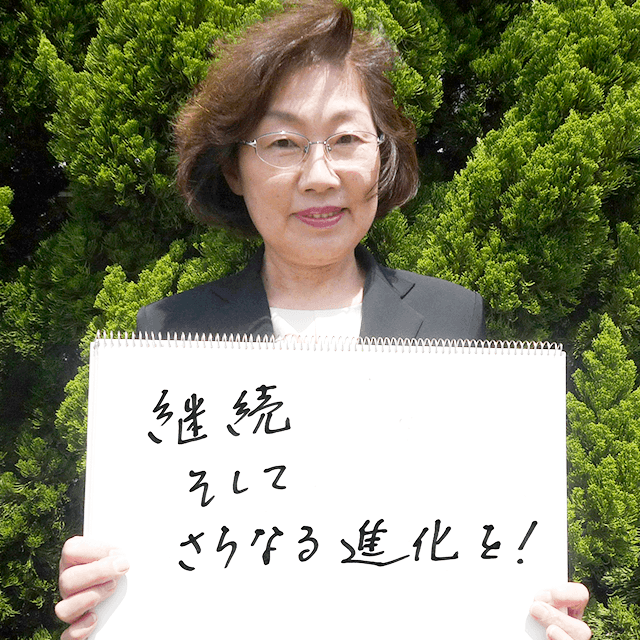 継続
そして
さらなる進化を!